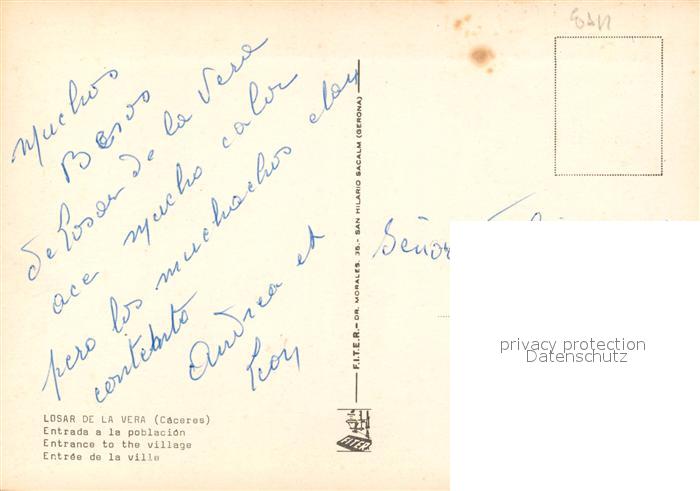 muchos
Besos
de Losar de la Vera
ace mucho calor
pero los muchachos
contento
Andrea et
Señor
F.I.T.E.R. — DR. MORALES, 35. - SAN HILARIO SACALM (GERONA)
FITER
LOSAR DE LA VERA (Cáceres)
Entrada a la población
Entrance to the village
Entrée de la ville
privacy protection
Datenschutz